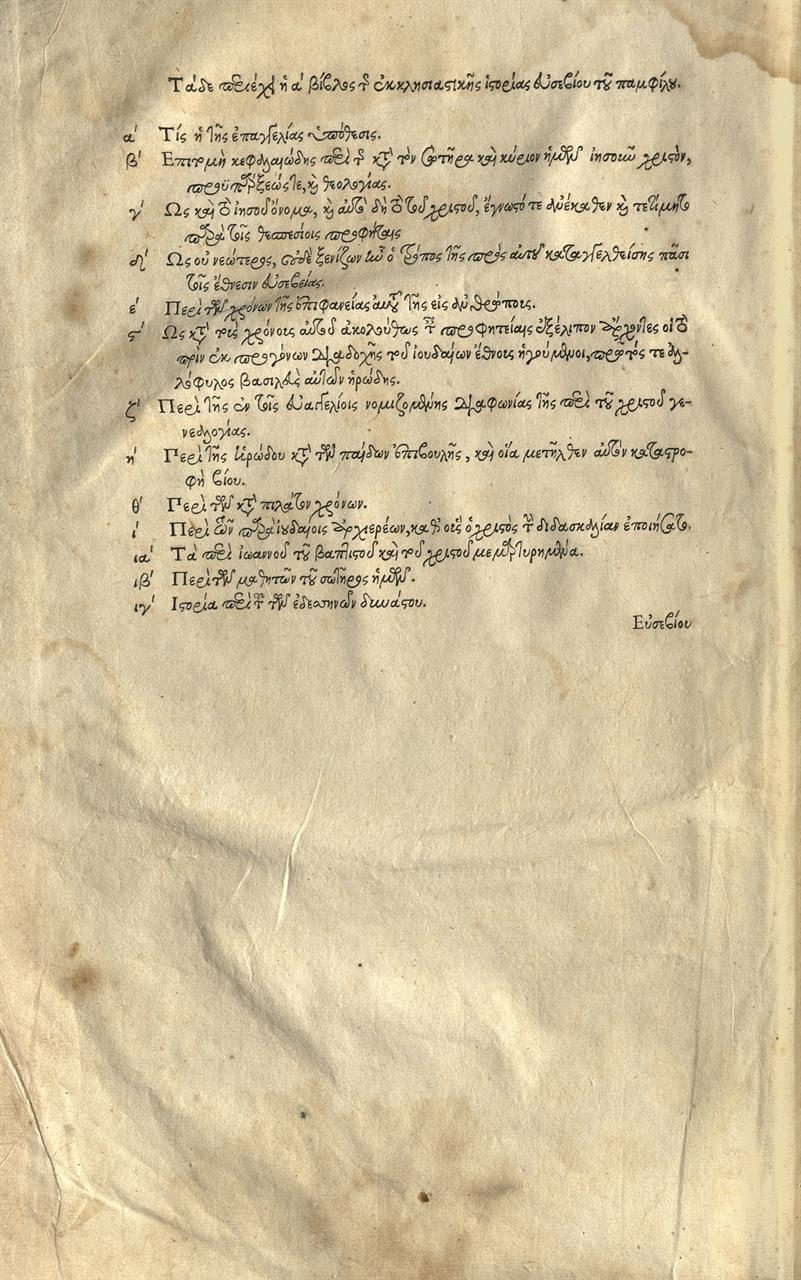 Τάδε περιέχει ἡ α′ βίβλος τῆς ἐκκλησιαστικῆς ἱστορίας εὐσεβίου τοῦ παμφίλου.
α′ Τίς ἡ τῆς ἐπαγγελίας ὑπόθεσις.
β′ Επιτομὴ κεφαλαιώδης περὶ τῆς κατὰ τὸν σωτῆρα καὶ κύριον ἡμῶν ἰησοῦν χριστὸν,
προϋπάρξεώς τε, καὶ θεολογίας.
γ′ Ως καὶ τὸ ἰησοῦ ὄνομα, καὶ αὐτὸ δὴ τὸ τοῦ χριστοῦ, ἔγνωστό τε ἀνέκαθεν καὶ τετίμητο
παρὰ τοῖς θεσπεσίοις προφήταις
δ′ Ως οὐ νεώτερος, οὐδὲ ξενίζων ἦν ὁ τρόπος τῆς πρὸς αὐτοῦ καταγγελθείσης πᾶσι
τοῖς ἔθνεσιν εὐσεβείας.
ε′ Περὶ τῶν χρόνων τῆς ἐπιφανείας αὐτοῦ τῆς εἰς ἀνθρώποις.
ϛ′ Ως κατὰ τοὺς χρόνους αὐτοῦ ἀκολούθως ταῖς προφητείαις ἐξέλιπον ἄρχοντες οἱ τὸ
πρὶν ἐκ προγόνων διαδοχῆς τοῦ ἰουδαίων ἔθνους ἡγούμενοι, πρῶτός τε ἀλ-
λόφυλος βασιλεὺς αὐτῶν ἡρώδης.
ζ′ Περὶ τῆς ἐν τοῖς εὐαγγελίοις νομιζομένης διαφωνίας τῆς περὶ τοῦ χριστοῦ γε-
νεαλογίας.
η′ Περὶ τῆς ἡρώδου κατὰ τῶν παίδων ἐπιβουλῆς, καὶ οἵα μετῆλθεν αὐτὸν καταστρο-
φὴ βίου.
θ′ Περὶ τῶν κατὰ πιλάτον χρόνων.
ι′ Περὶ τῶν παρὰ ἰουδαίοις ἀρχιερέων, καθ' οὓς ὁ χριστὸς τὴν διδασκαλίαν ἐποιήσατο.
ια′ Τὰ περὶ ἰωάννου τοῦ βαπτιστοῦ καὶ τοῦ χριστοῦ μεμαρτυρημένα.
ιβ′ Περὶ τῶν μαθητῶν τοῦ σωτῆρος ἡμῶν.
ιγ′ Ιστορία περὶ τοῦ τῶν ἐδεσσηνῶν δυνάστου.
Εὐσεβίου